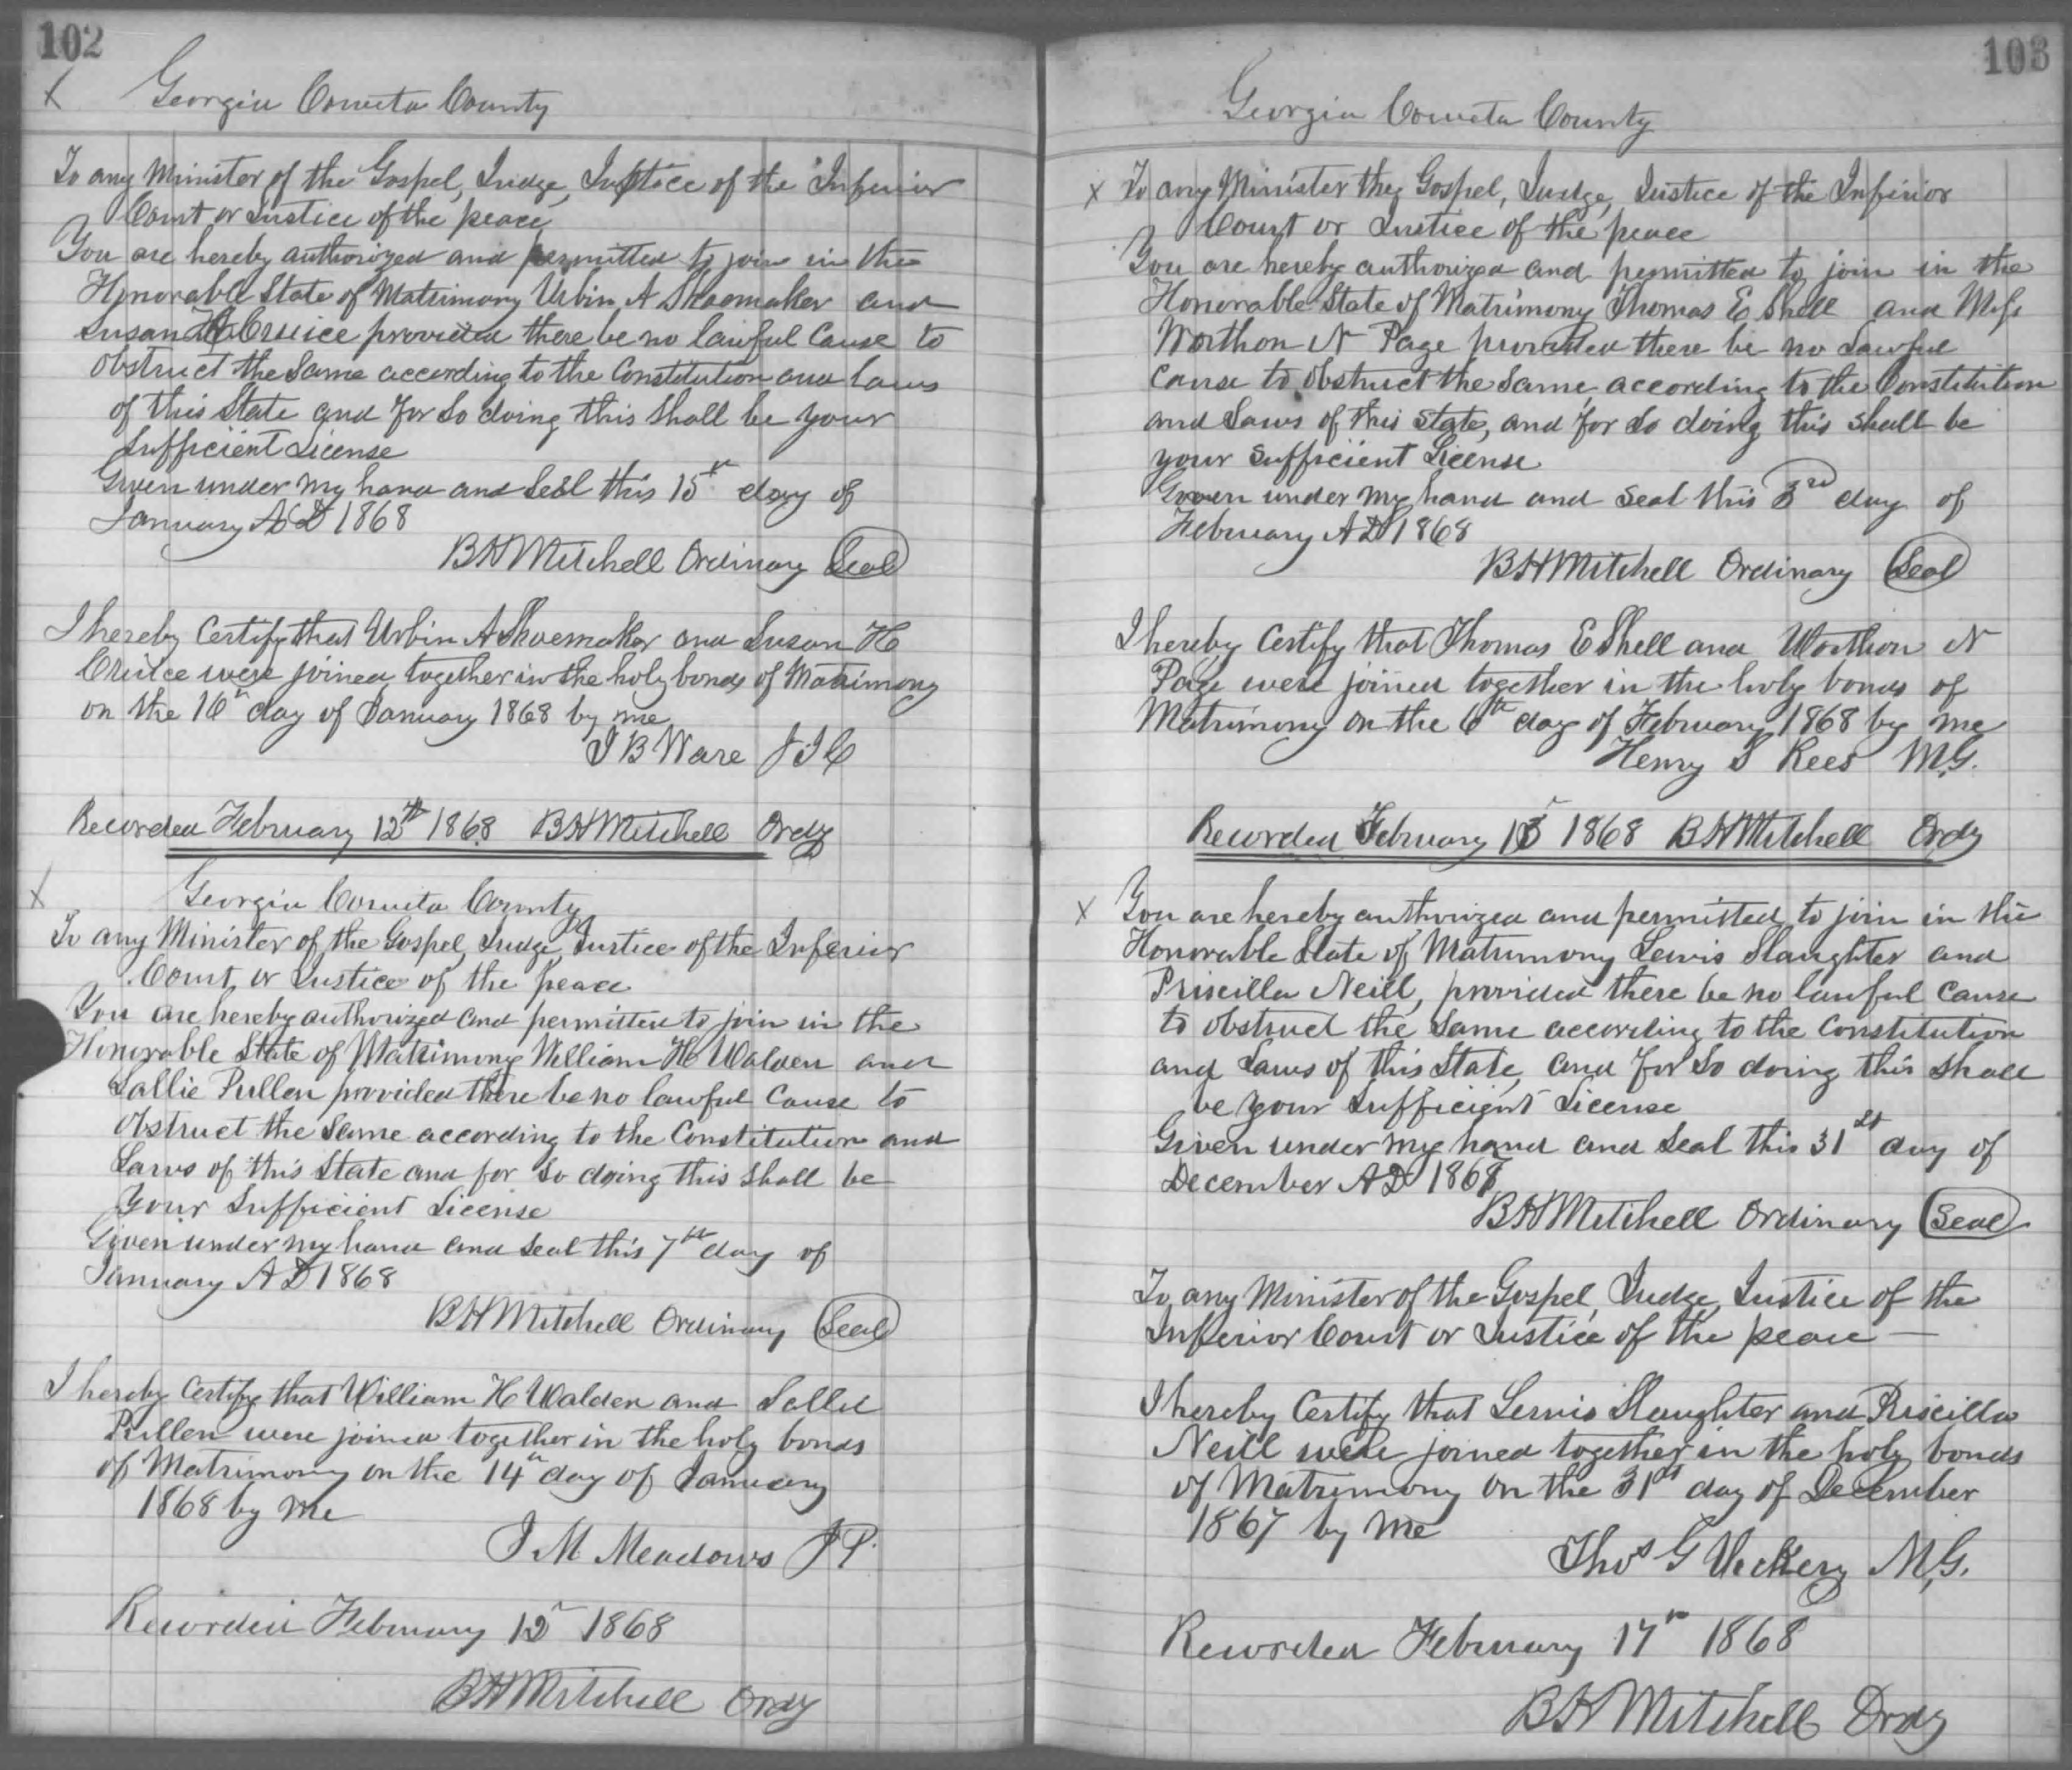 102
Georgia Coweta County
To any Minister of the Gospel, Judge, Justice of the Inferior
Court or Justice of the peace
You are hereby authorized and permitted to join in the
Honorable State of Matrimony Urbin A Shoemaker and
Susan H Cruice provided there be no lawful Cause to
obstruct the Same according to the Constitution and laws
of this State and for So doing this Shall be your
Sufficient License
Given under my hand and Seal this 15th day of
January A D 1868
B H Mitchell Ordinary Seal
I hereby Certify that Urbin A Shoemaker and Susan H
Cruice were joined together in the holy bonds of Matrimony
on the 16th day of January 1868 by me
J B Ware J I C
Recorded February 12th 1868 B H Mitchell Ordy
Georgia Coweta County
To any Minister of the Gospel, Judge, Justice of the Inferior
Court, or Justice of the peace
You are hereby authorized and permitted to join in the
Honorable State of Matrimony William H Walden and
Sallie Pullen provided there be no lawful Cause to
Obstruct the Same according to the Constitution and
Laws of this State and for So doing this Shall be
Your Sufficient License
Given under my hand and Seal this 7th day of
January A D 1868
B H Mitchell Ordinary Seal
I hereby Certify that William H Walden and Sallie
Pullen were joined together in the holy bonds
of Matrimony on the 14th day of January
1868 by Me
J M Meadows J P.
Recorded February 12 1868
B H Mitchell Ordy
103
Georgia Coweta County
x To any Minister the Gospel, Judge, Justice of the Inferior
Court or Justice of the peace
You are hereby authorized and permitted to join in the
Honorable State of Matrimony Thomas E Shell and Miss
Worthon N Page provided there be no Lawful
Cause to obstruct the Same, according to the Constitution
and Laws of this State, and for So doing this Shall be
your Sufficient License
Given under my hand and Seal this 3rd day of
February A D 1868
B H Mitchell Ordinary Seal
I hereby Certify that Thomas E Shell and Worthon N
Page were joined together in the holy bonds of
Matrimony on the 6th day of February 1868 by me
Henry S Rees M.G.
Recorded February 13 1868 B H Mitchell Ordy
x You are hereby authorized and permitted to join in the
Honorable State of Matrimony Lewis Slaughter and
Priscilla Neill, provided there be no lawful Cause
to obstruct the Same according to the Constitution
and Laws of this State, and for So doing this Shall
be your Sufficient License
Given under my hand and Seal this 31st day of
December A D 1867
B H Mitchell Ordinary Seal
To any Minister of the Gospel, Judge, Justice of the
Inferior Court or Justice of the peace —
I hereby Certify that Lewis Slaughter and Priscilla
Neill were joined together in the holy bonds
of Matrimony on the 31st day of December
1867 by Me
Thos G M.G.
Recorded February 17th 1868
B H Mitchell Ordy